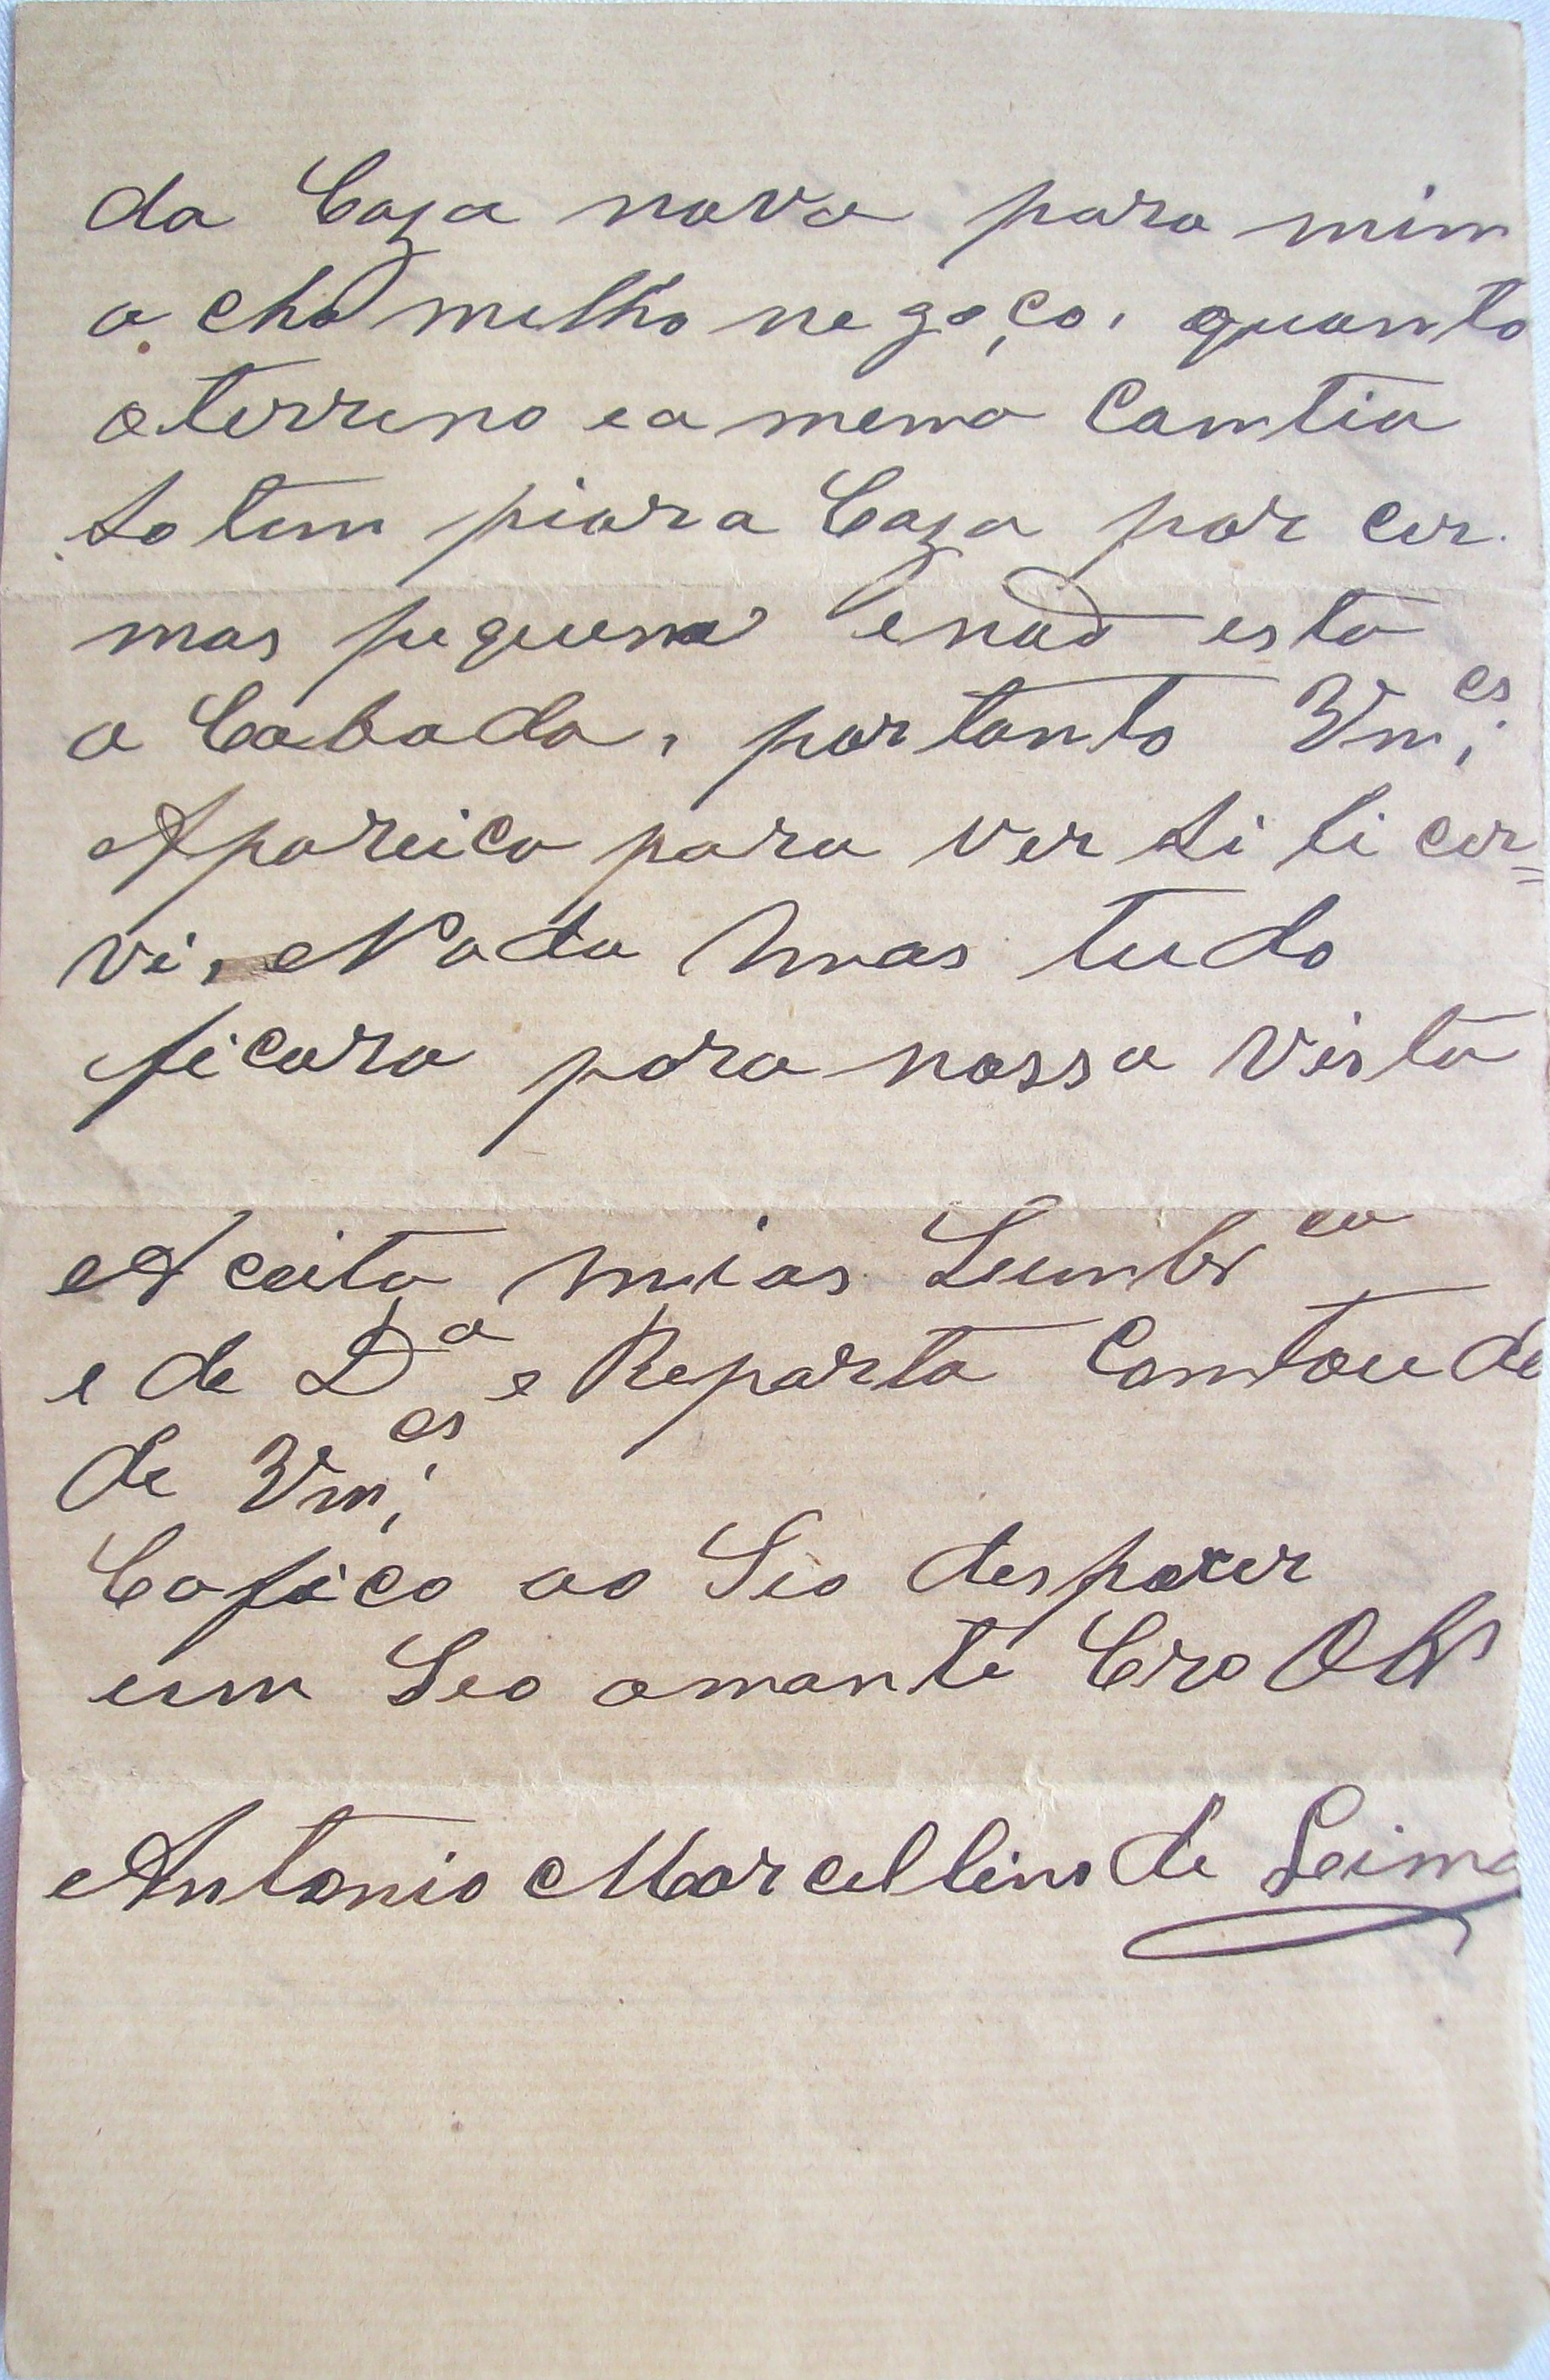 da Caza nova para mim
a cho melho negoço, quanto
oterreno ea mema Camtia
So tem piora Caza por cer
mas pequena enaõ esta
a Cabada, portanto Vm.ces
Apareica para ver Si li cer=
vi, Nada mas tudo
ficara para nossa vista
Aceita mias Lembr.ca
e de D.a e Reparta Comtoude
de Vm.ces
Cafico ao Seo desporer
um Seo amante Cro Obr
Antonio Marcellino de Leima